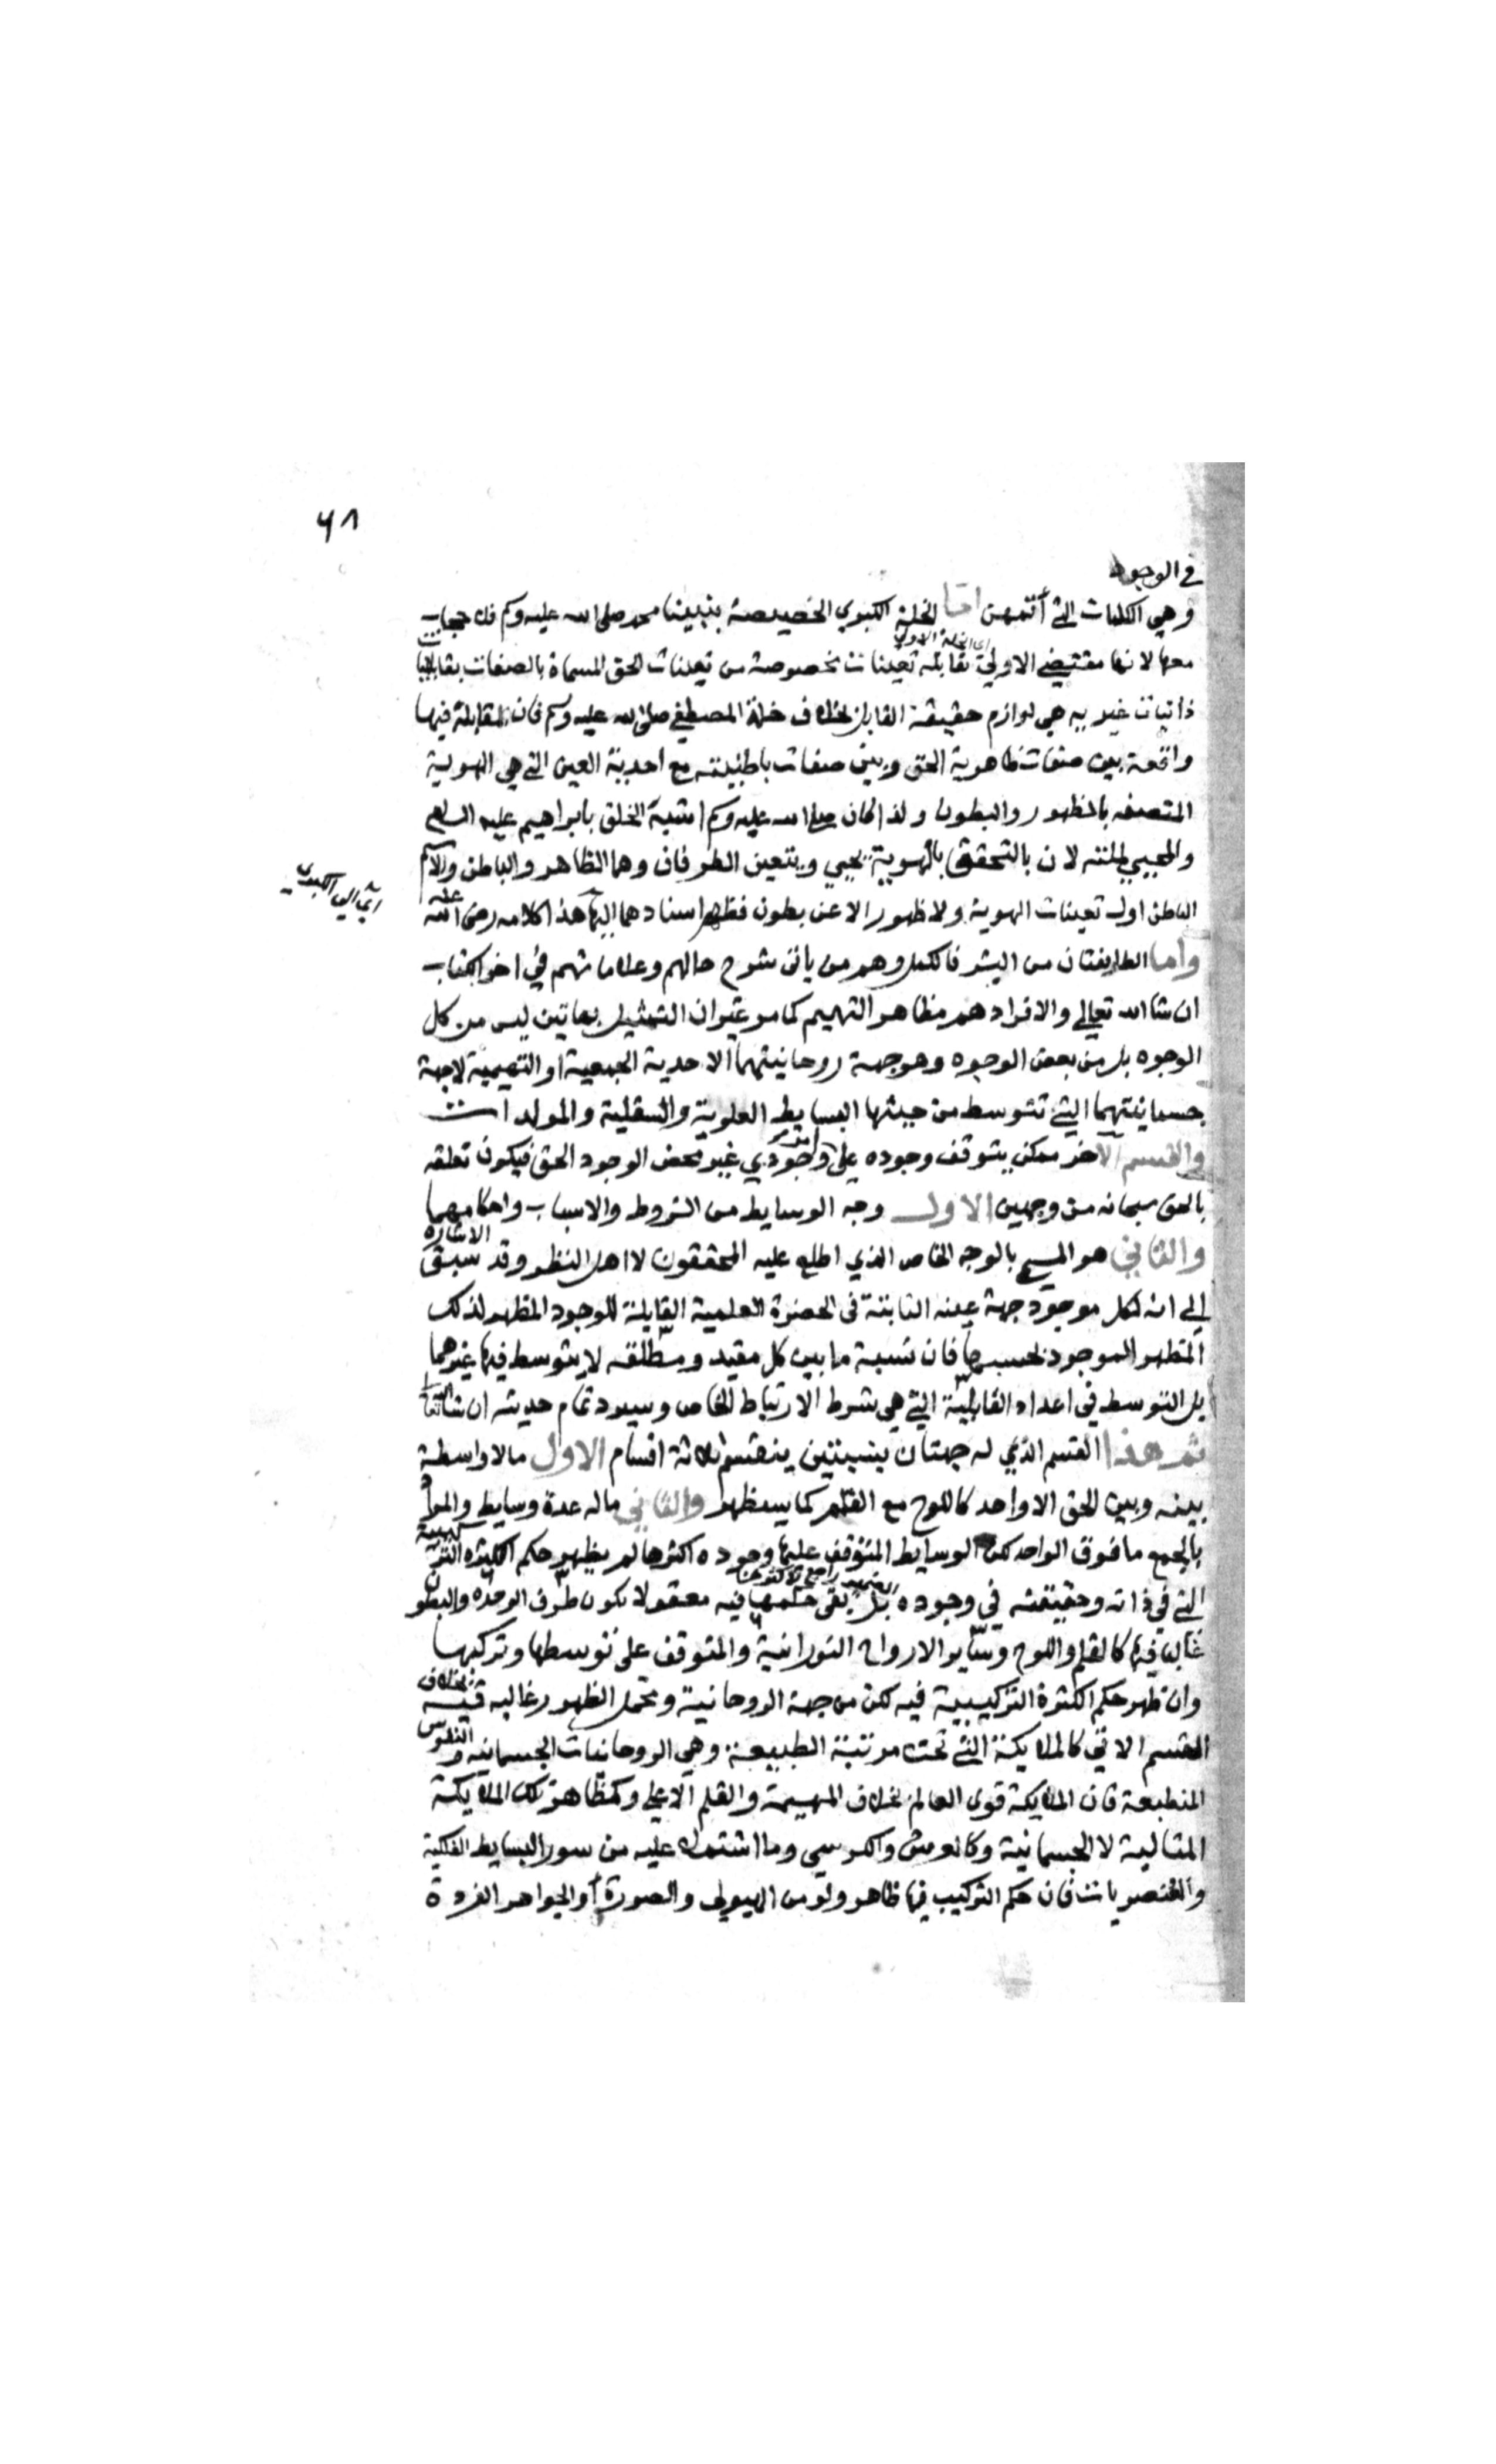 ٦٨
في الوجود
وهي الكلمات التي أتمهن اما الخلة الكبري الخصيصة بنبينا محمد صلى الله عليه وسلم فلا حجاب
اي الخلة الاولى
معها لانها مقتضي الاولي تقابله تعينات مخصوصة من تعينات الحق المسماة بالصفات بقابليات
ذاتيات غيرية هي لوازم حقيقة القابل بخلاف خلة المصطفي صلى الله عليه وسلم فان المقابلة فيها
واقعة بين صفات ظاهرية الحق وبين صفات باطنيته مع احدية العين التي هي الهوية
المتصفه بالظهور والبطون ولذا كان صلى الله عليه وسلم اشبه الخلق بابراهيم عليه السلام
والمحيي لملته لان بالتحقق بالهوية يحيي ويتعين الطرفان وهما الظاهر والباطن والاسم
اي الي الكبرى
الباطن اول تعينات الهوية ولا ظهور الا عن بطون فظهر اسنادهما اليها هذا كلامه رضي الله عنه
واما الطايفتان من البشر فالكمل وهم من ياتى شرح حالهم وعلاماتهم في اخر الكتاب
ان شا الله تعالي والافراد هم مظاهر التهيم كما مر غير ان التمثيل بهاتين ليس من كل
الوجوه بل من بعض الوجوه وهو جهة روحانيتهما الاحدية الجمعية او التهيمية لا جهة
جسمانيتهما التي تتوسط من حيثها البسايط العلوية والسفلية والمولدات
والقسم الآخر ممكن يتوقف وجوده على امر وجودي غير محض الوجود الحق فيكون تعلقه
بالحق سبحانه من وجهين الاول وجه الوسايط من الشروط والاسباب واحكامهما
والثاني هو المسمي بالوجه الخاص الذي اطلع عليه المحققون لا اهل النظر وقد سبق الاشارة
الي انه لكل موجود جهة عينه الثابتة في الحضرة العلمية القابلة للوجود المظهر لذلك
المظهر الموجود بحسبها فان نسبة ما بين كل مقيد ومطلقه لا يتوسط فيها غيرهما
بل التوسط في اعداد القابلية التي هي شرط الارتباط الخاص وسيرد تمام حديثه ان شا الله تعالى
ثم هذا القسم الذي له جهتان بنسبتين ينقسم ثلاثة اقسام الاول ما لا واسطة
بينه وبين الحق الا واحد كاللوح مع القلم كما سيظهر والثاني ما له عدة وسايط والمراد
بالجمع ما فوق الواحد لكن الوسايط المتوقف عليها وجوده اكثرها لم يظهر حكم الكثره التركيبية
الضمير راجع لاكثرها
التي في ذاته وحقيقته في وجوده بل بقى حكمها فيه معقولا لكون طرف الوحدة والبطون
غالبا فيها كالقلم واللوح وساير الارواح النورانية والمتوقف على توسطها وتركبها
وان ظهر حكم الكثرة التركيبية فيه لكن من جهة الروحانية ومحتمل الظهور غالبه فيه بخلاف
القسم الاتي كالملايكة التي تحت مرتبة الطبيعة وهي الروحانيات الجسمانيه والنفوس
المنطبعة فان الملايكة قوى العالم بخلاف المهيمة والقلم الاعلي وكمظاهر تلك الملايكة
المثالية لا الجسمانية وكالعرش والكرسي وما اشتملا عليه من سور البسايط الفلكية
والعنصريات فان حكم التركيب فيها ظاهر ولو من الهيولي والصورة أو الجواهر الفردة